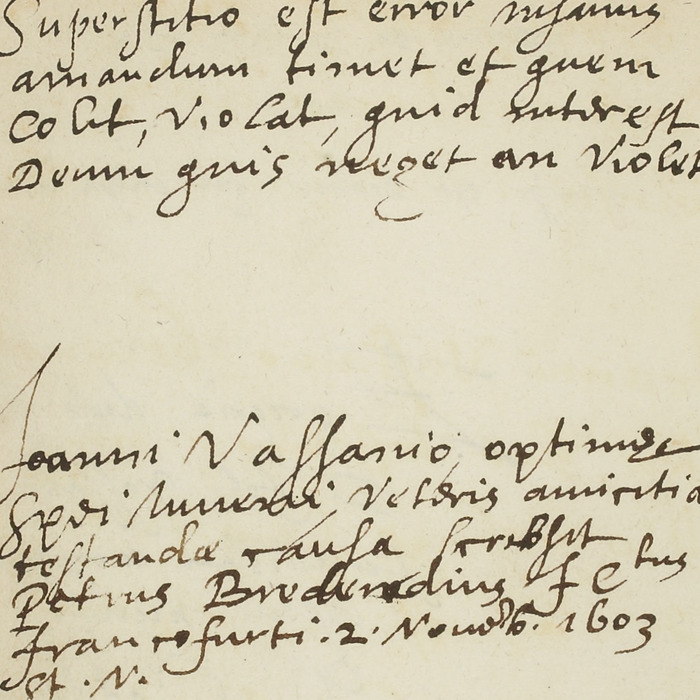 Superstitio est error insanus
amandum timet et quem
Colit, Violat, quid interest
Deum quis neget an Violet
Joanni Vassanio optimae
Spei Iuveni Veteris amicitia
testandae causa scribsit
Petrus Brederodius
Francofurti. 2. Novemb. 1603
St. N.